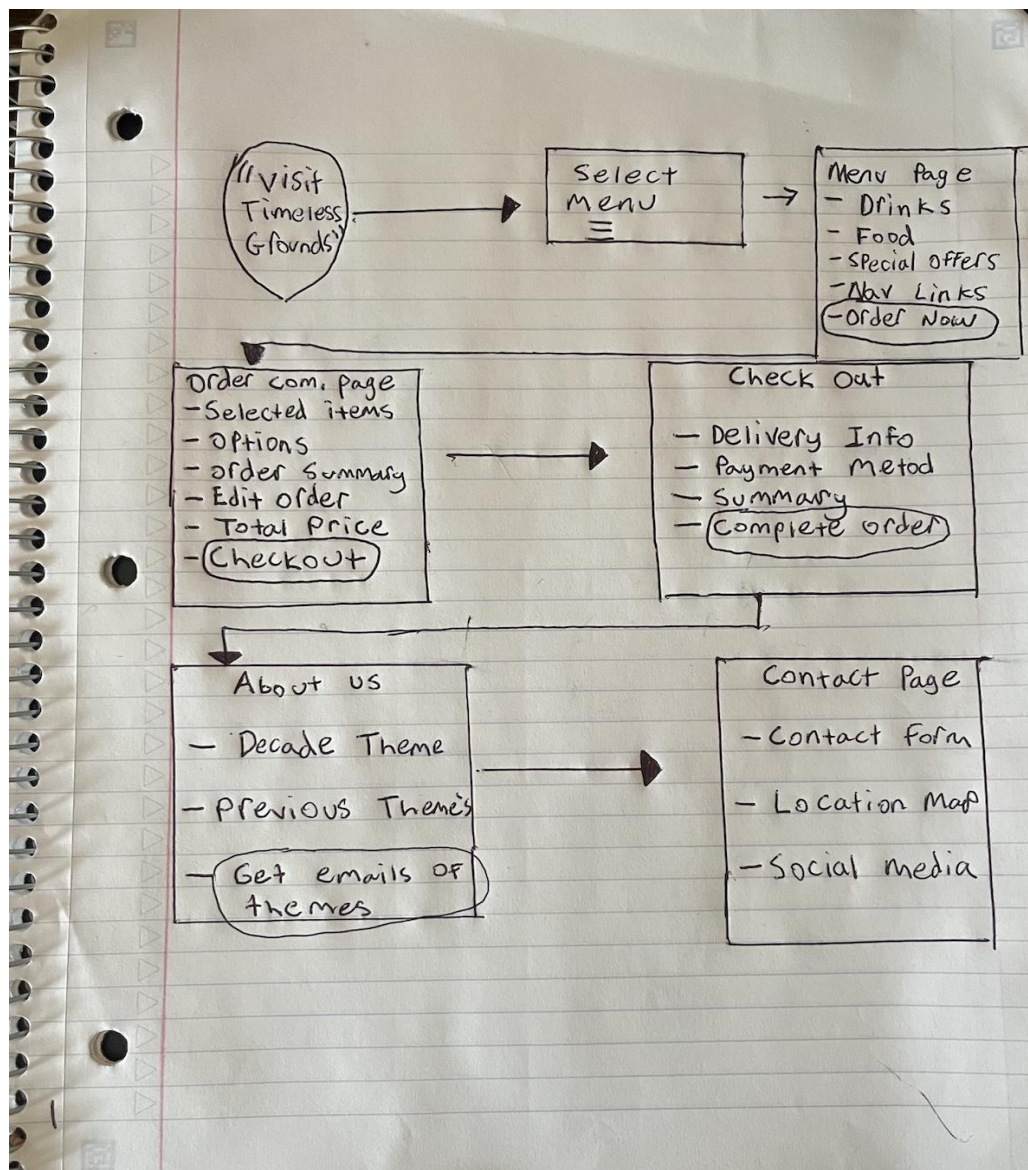 "Visit
Timeless
Grounds"
Select
Menu
Menu Page
- Drinks
- Food
- Special Offers
- Nav Links
- Order Now
Order com. page
- Selected items
- Options
- Order Summary
- Edit order
- Total Price
- Checkout
Check Out
- Delivery Info
- Payment Metod
- Summary
- Complete order
About us
- Decade Theme
- Previous Theme's
- Get emails of
themes
Contact Page
- Contact Form
- Location Map
- Social media